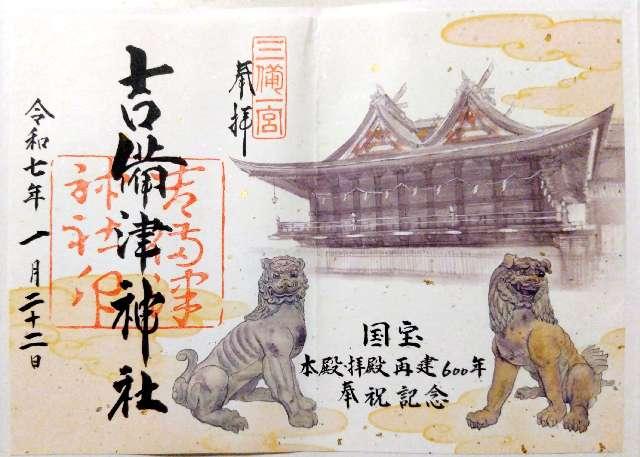 三備一宮
奉拝
吉備津神社
吉備津
神社印
令和七年 一月二十二日
国宝
本殿拝殿再建600年
奉祝記念